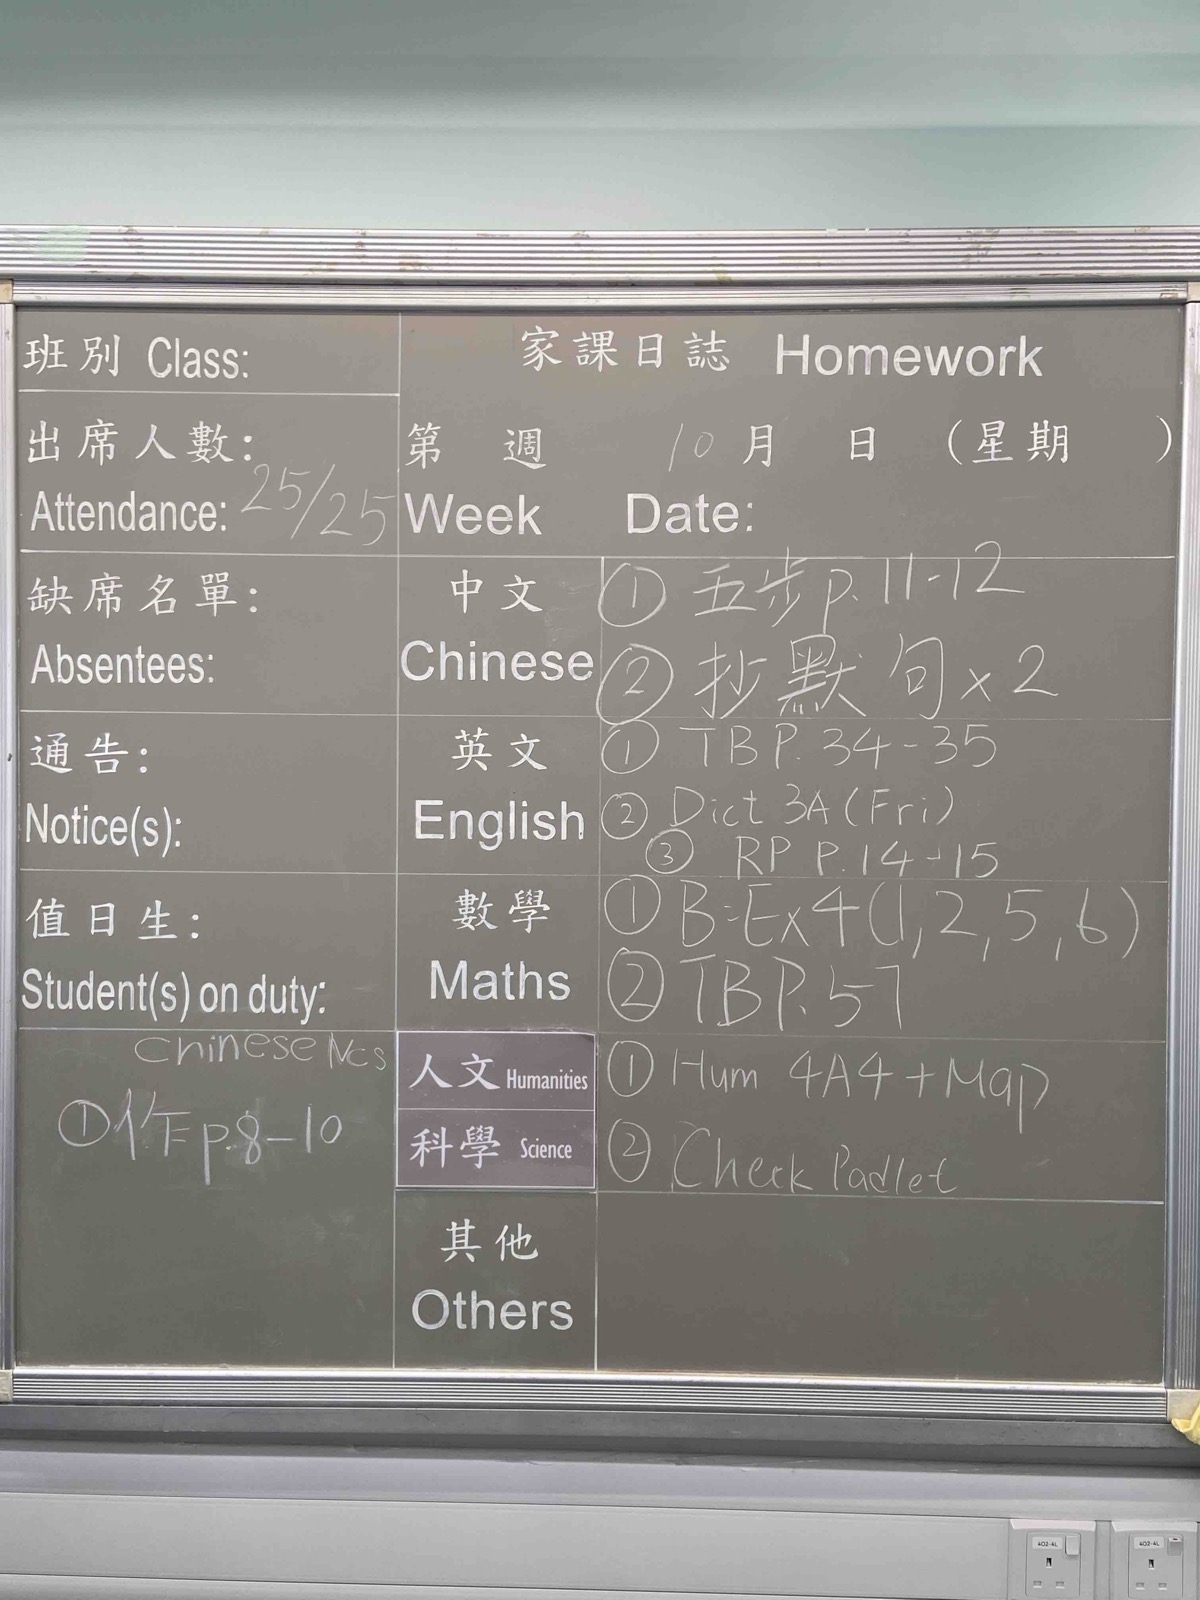 班別 Class:
家課日誌 Homework
出席人數:
Attendance: 25/25
第 週 10月 日 (星期 )
Week Date:
缺席名單:
Absentees:
中文
Chinese
① 五步 p.11-12
② 抄默句 x2
通告:
Notice(s):
英文
English
① TB P.34-35
② Dict 3A (Fri)
③ RP P.14-15
值日生:
Student(s) on duty:
數學
Maths
① B:Ex4(1,2,5,6)
② TB P.57
Chinese NCS
① 作 p.8-10
人文 Humanities
科學 Science
① Hum 4A4 + Map
② Check Padlet
其他
Others
402-4L
402-4L